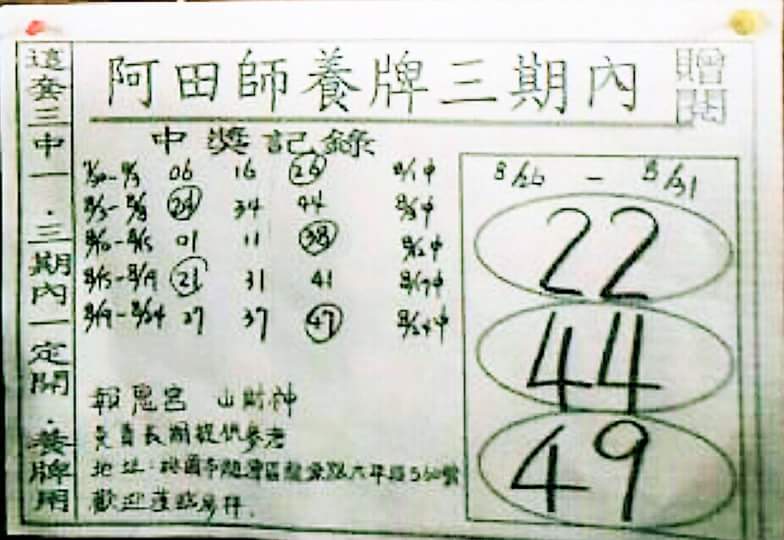 阿田師養牌三期內
贈閱
這套三中一.三期內一定開.養牌用
中獎記錄
7/30-8/3 06 16 26 8/1中
8/3-8/8 24 34 44 8/8中
8/10-8/15 01 11 38 8/12中
8/15-8/19 21 31 41 8/17中
8/19-8/24 27 37 47 8/24中
報鬼宮 山財神
免費長期提供參考
地址:桃園市龍潭區龍源路六年段560號
歡迎蒞臨參拜.
8/26 - 8/31
22
44
49